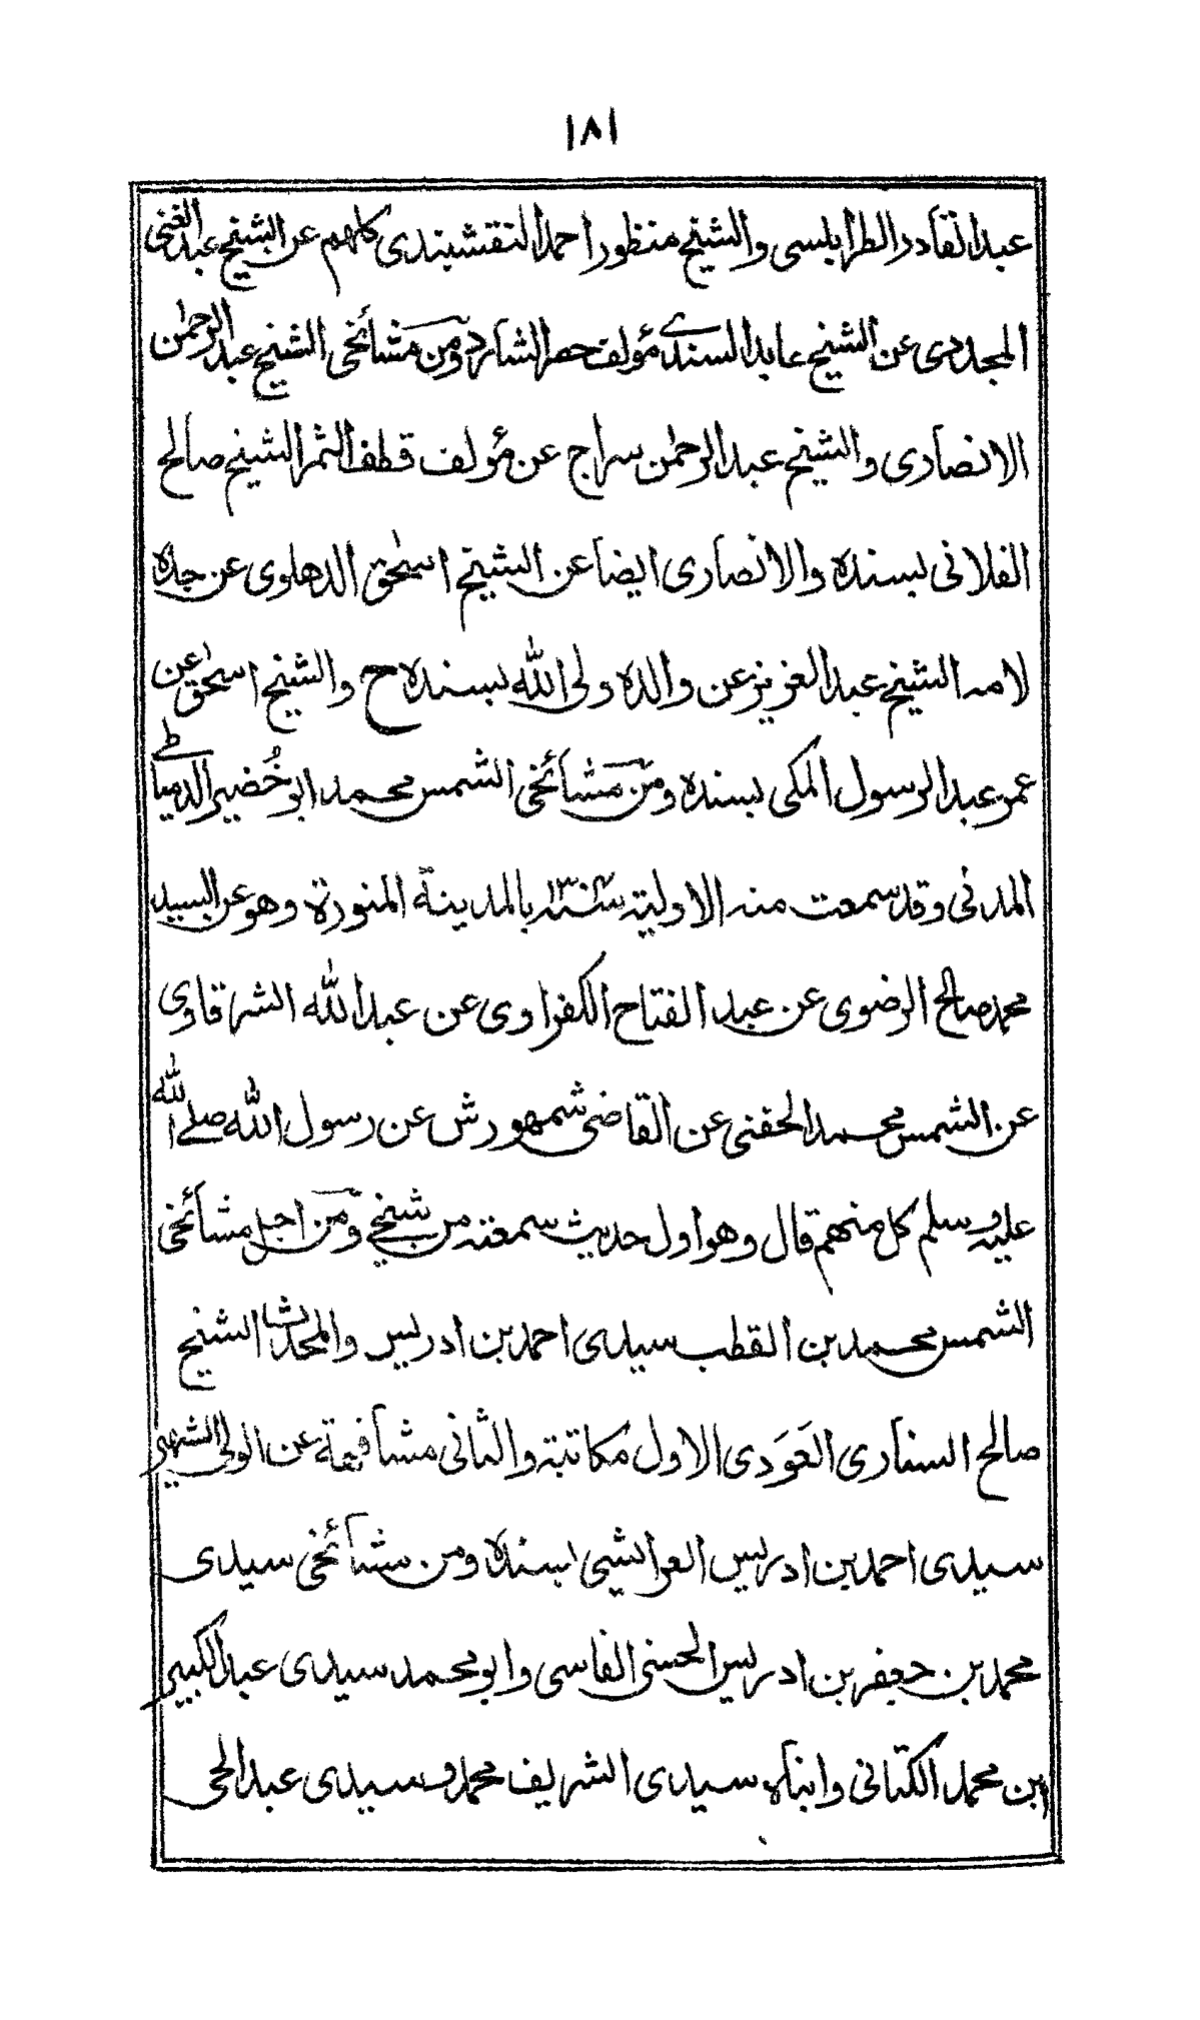 ١٨١
عبدالقادر الطرابلسى والشيخ منظور احمد النقشبندى كلهم عن الشيخ عبدالغنى
المجددى عن الشيخ عابد السندى مؤلف حصر الشارد ومن مشائخى الشيخ عبدالرحمٰن
الانصارى والشيخ عبدالرحمٰن سراج عن مؤلف قطف الثمر الشيخ صالح
الفلانى بسنده والانصارى ايضا عن الشيخ اسحٰق الدهلوى عن جده
لامه الشيخ عبدالعزيز عن والده ولى الله بسنده ح والشيخ اسحٰق عن
عمر عبدالرسول المكى بسنده ومن مشائخى الشمس محمد ابوخُضير الدمياطى
المدنى وقد سمعت منه الاولية سنة بالمدينة المنورة وهو عن السيد
محمد صالح الرضوى عن عبد الفتاح الكفراوى عن عبدالله الشرقاوى
عن الشمس محمد الحفنى عن القاضى شمهورش عن رسول الله صلى الله
عليه وسلم كل منهم قال وهو اول حديث سمعته من شيخى ومن اجل مشائخى
الشمس محمد بن القطب سيدى احمد بن ادريس والمحدث الشيخ
صالح السنارى العَوَدى الاول مكاتبة والثانى مشافهة عن الولى الشهير
سيدى احمد بن ادريس العرائشى بسنده ومن مشائخى سيدى
محمد بن جعفر بن ادريس الحسنى الفاسى وابو محمد سيدى عبدالكبير
ابن محمد الكتانى وابناه سيدى الشريف محمد وسيدى عبدالحى